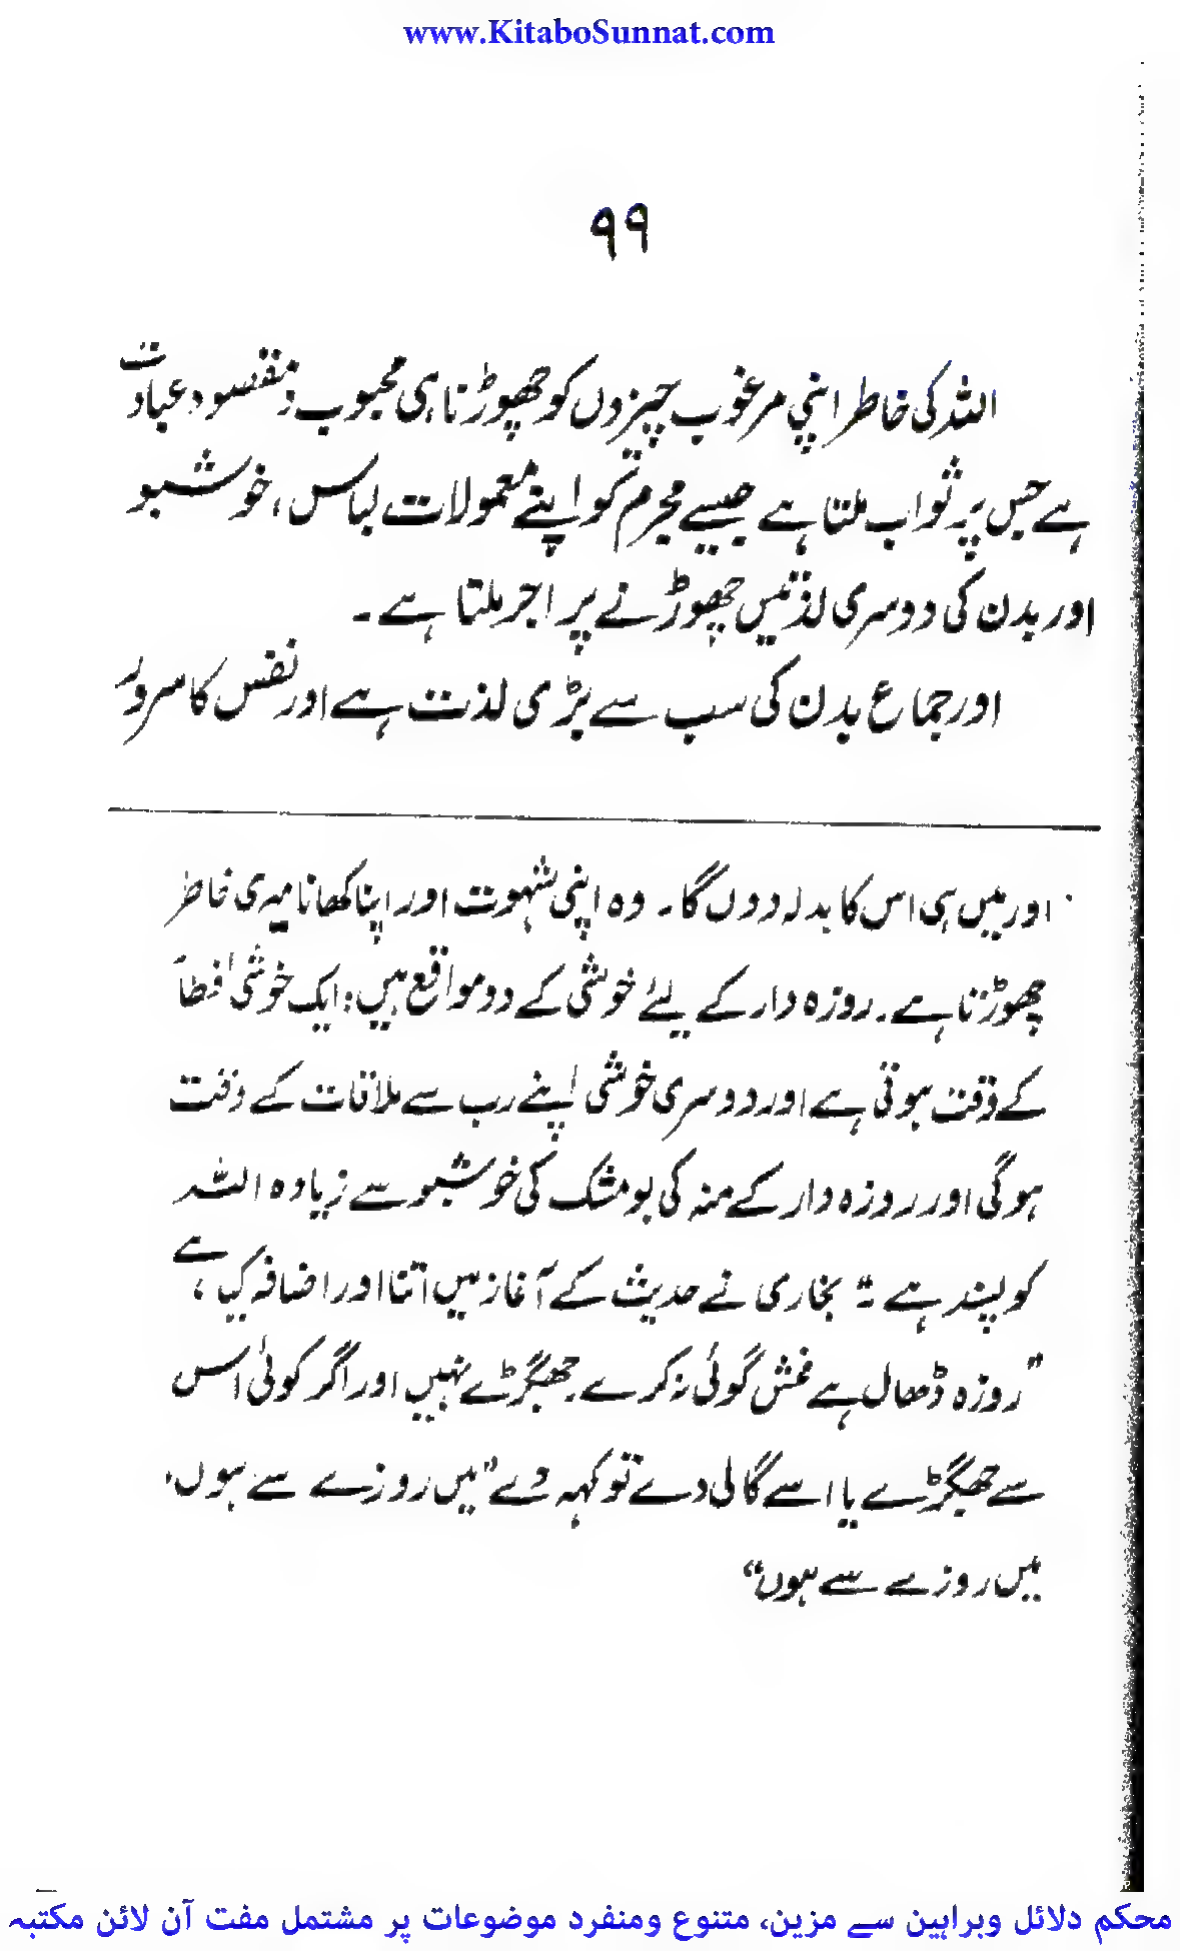 www.KitaboSunnat.com
۹۹
اللہ کی خاطر اپنی مرغوب چیزوں کو چھوڑنا ہی محبوب و مقصود عبادت
ہے جس پر ثواب ملتا ہے جیسے محرم کو اپنے معمولات لباس، خوشبو
اور بدن کی دوسری لذتیں چھوڑنے پر اجر ملتا ہے۔
اور جماع بدن کی سب سے بڑی لذت ہے اور نفس کا سرور
اور میں ہی اس کا بدلہ دوں گا۔ وہ اپنی شہوت اور اپنا کھانا میری خاطر
چھوڑتا ہے۔ روزہ دار کے لئے خوشی کے دو مواقع ہیں: ایک خوشی افطار
کے وقت ہوتی ہے اور دوسری خوشی اپنے رب سے ملاقات کے وقت
ہوگی اور روزہ دار کے منہ کی بو مشک کی خوشبو سے زیادہ اللہ
کو پسند ہے" بخاری نے حدیث کے آغاز میں اتنا اور اضافہ کیا ہے،
"روزہ ڈھال ہے فحش گوئی نہ کرے جھگڑے نہیں اور اگر کوئی اس
سے جھگڑے یا اسے گالی دے تو کہہ دے "میں روزے سے ہوں،
میں روزے سے ہوں"
محکم دلائل وبراہین سے مزین، متنوع ومنفرد موضوعات پر مشتمل مفت آن لائن مکتبہ